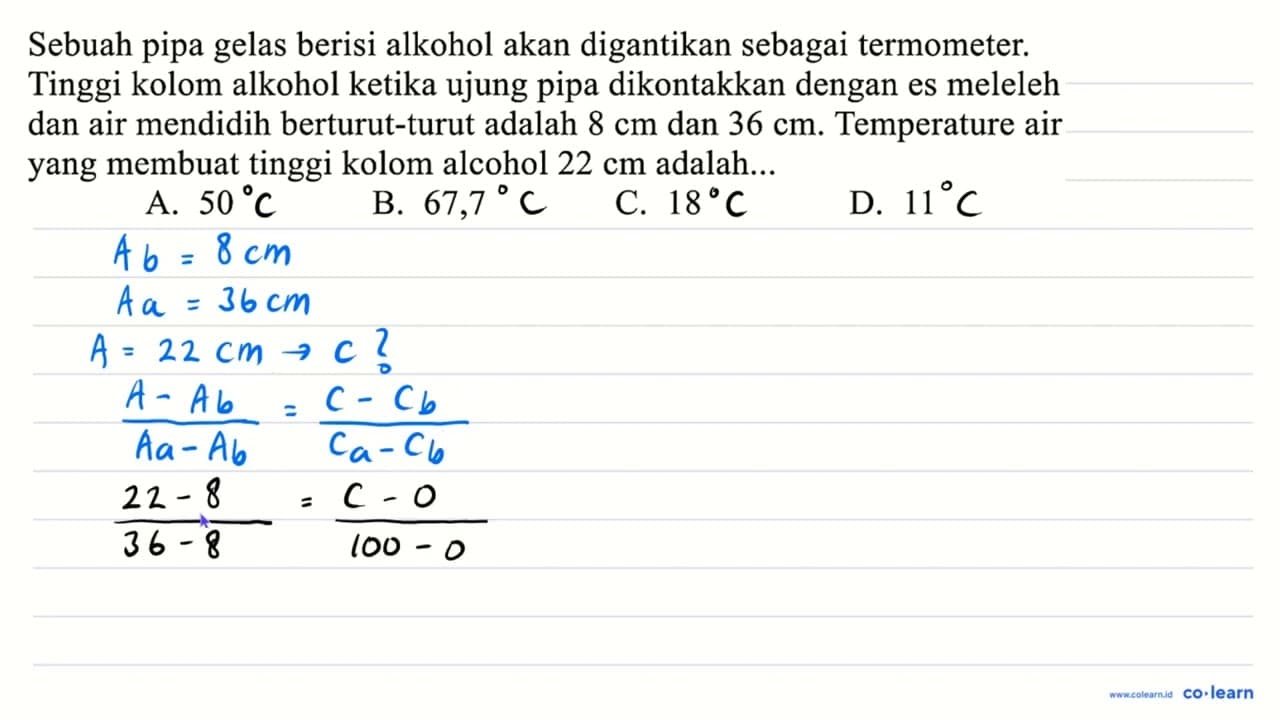 Sebuah pipa gelas berisi alkohol akan digantikan sebagai termometer.
Tinggi kolom alkohol ketika ujung pipa dikontakkan dengan es meleleh
dan air mendidih berturut-turut adalah 8 cm dan 36 cm. Temperature air
yang membuat tinggi kolom alcohol 22 cm adalah...
A. 50 °C B. 67,7 °C C. 18 °C D. 11 °C
Ab = 8 cm
Aa = 36 cm
A = 22 cm → C ?
A - Ab = C - Cb
Aa - Ab Ca - Cb
22 - 8 = C - 0
36 - 8 100 - 0
www.colearn.id co·learn